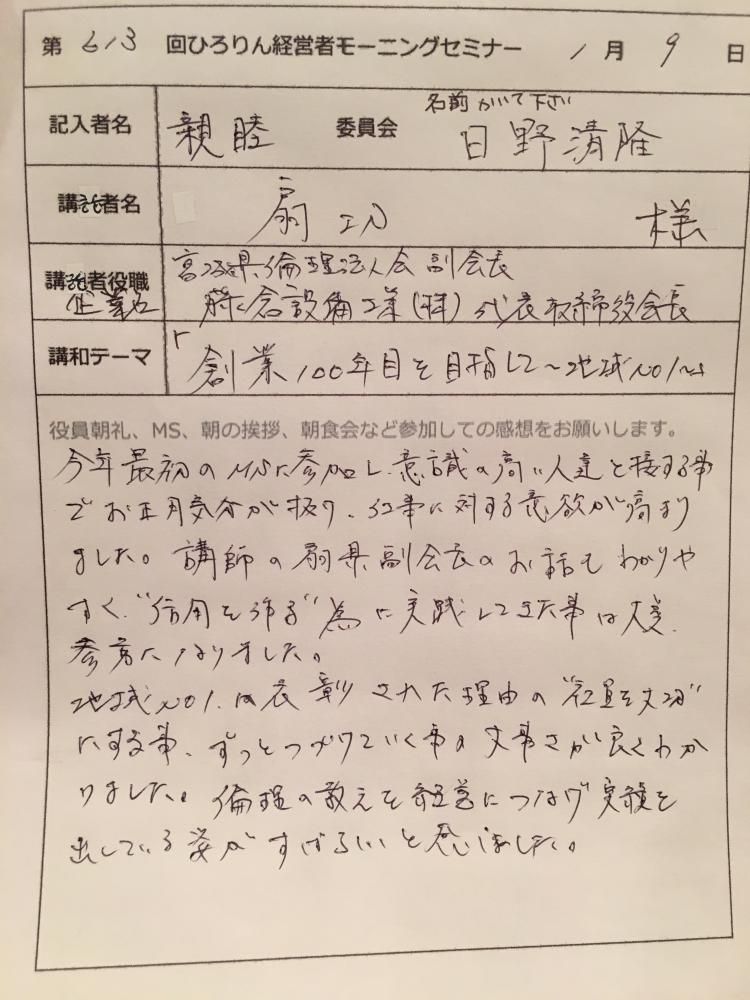 第 613 回ひろりん経営者モーニングセミナー 1 月 9 日
名前かいて下さい
記入者名 親睦 委員会 日野清隆
講話者名 扇 功 様
講話者役職 宮崎県倫理法人会 副会長
企業名 設備工業(株) 代表取締役会長
講和テーマ 「創業100年目を目指して〜地域NO1〜
役員朝礼、MS、朝の挨拶、朝食会など参加しての感想をお願いします。
今年最初のMSに参加し、意識の高い人達と接する事
でお正月気分が抜け、仕事に対する意欲が高まり
ました。講師の扇県副会長のお話もわかりや
すく、"信用を得る"為に実践してきた事は大変
参考になりました。
地域NO1.に表彰された理由の"社員を丈夫"
にする事、ずっとつづけていく事の大事さが良くわか
りました。倫理の教えを経営につなげ実績を
出している姿がすばらしいと感じました。